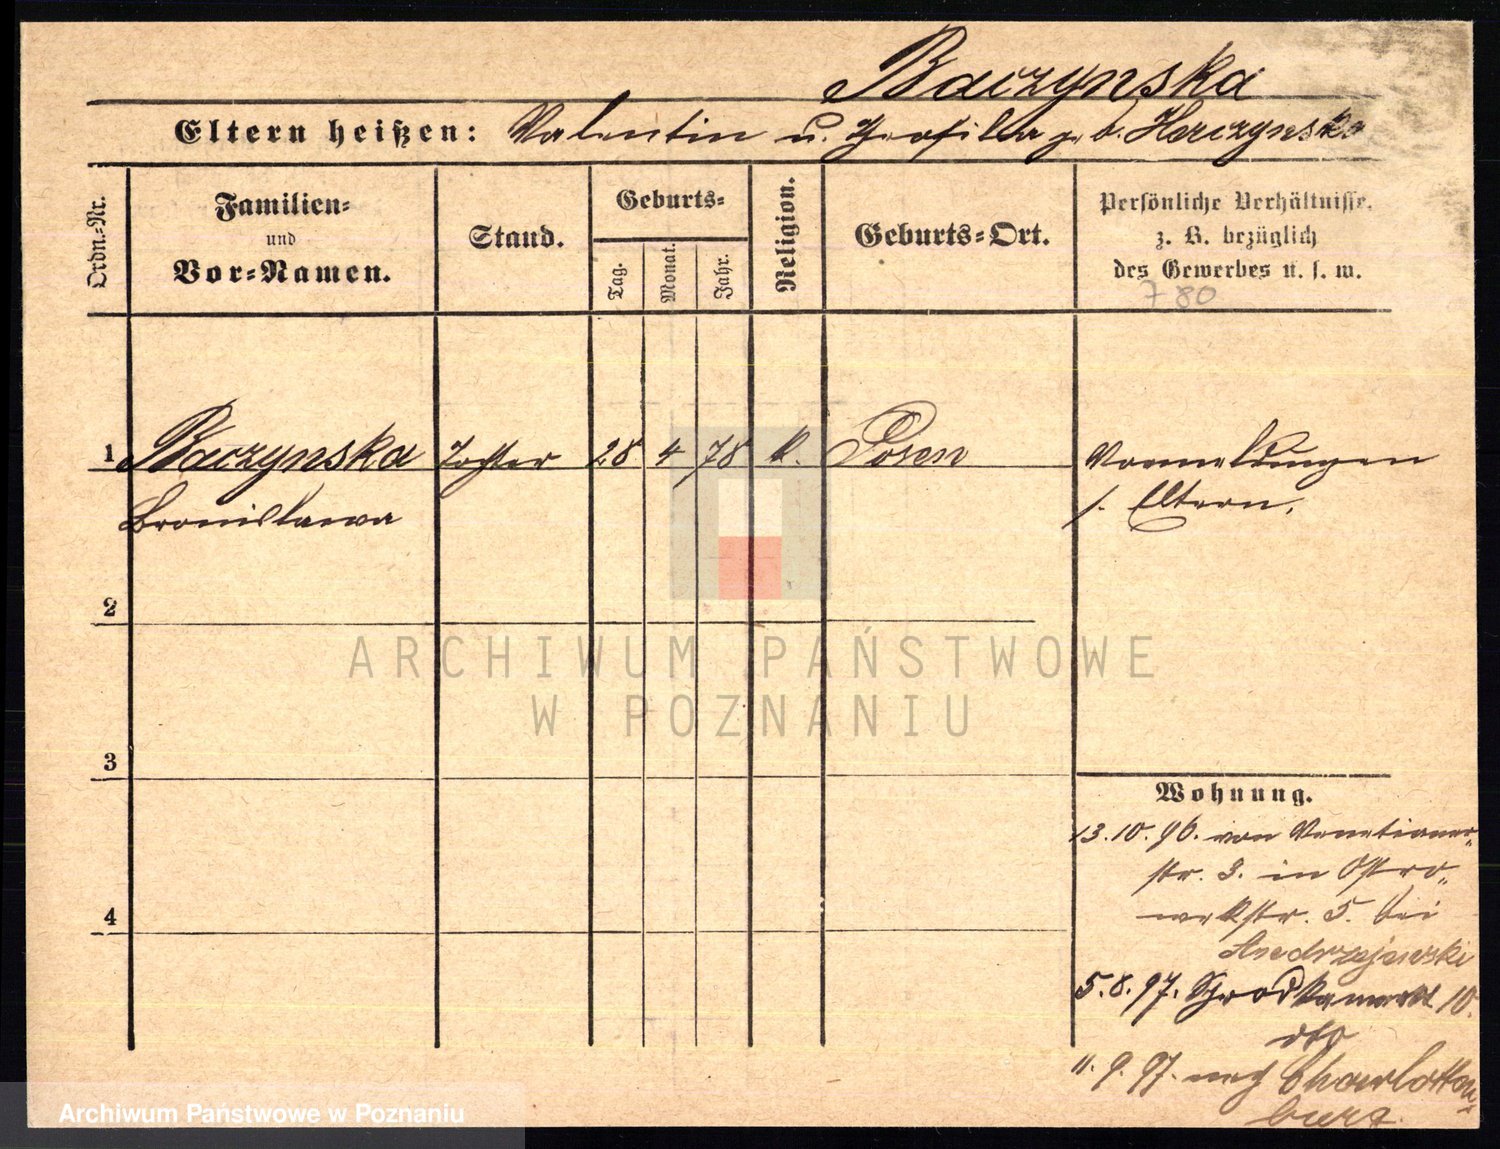 Baczynska
Eltern heißen: Valentin u. Teofila geb. Harczynska
Ordn.-Nr.
Familien-
und
Vor-Namen.
Stand.
Geburts-
Tag.
Monat.
Jahr.
Religion.
Geburts-Ort.
Persönliche Verhältnisse.
z. B. bezüglich
des Gewerbes u. s. w.
780
1 Baczynska Tochter 28 4 78 k. Posen Vormeldungen
Bronislawa s. Eltern.
2
3
4
Wohnung.
13.10.96. von Venetianer-
str. 3. in Ostro-
wekstr. 5. bei
Andrzejewski
5.8.97. Schrodkamarkt 10.
dto
11.9.97. nach Charlotten-
burg.
ARCHIWUM PAŃSTWOWE
W POZNANIU
Archiwum Państwowe w Poznaniu